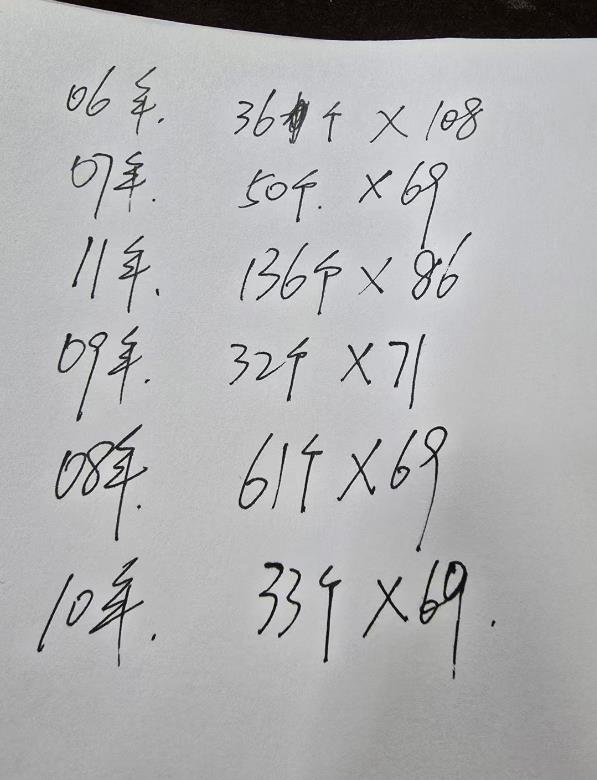 06年. 36个 × 108
07年. 50个. × 69
11年. 136个 × 86
09年. 32个 × 71
08年. 61个 × 69
10年. 33个 × 69.